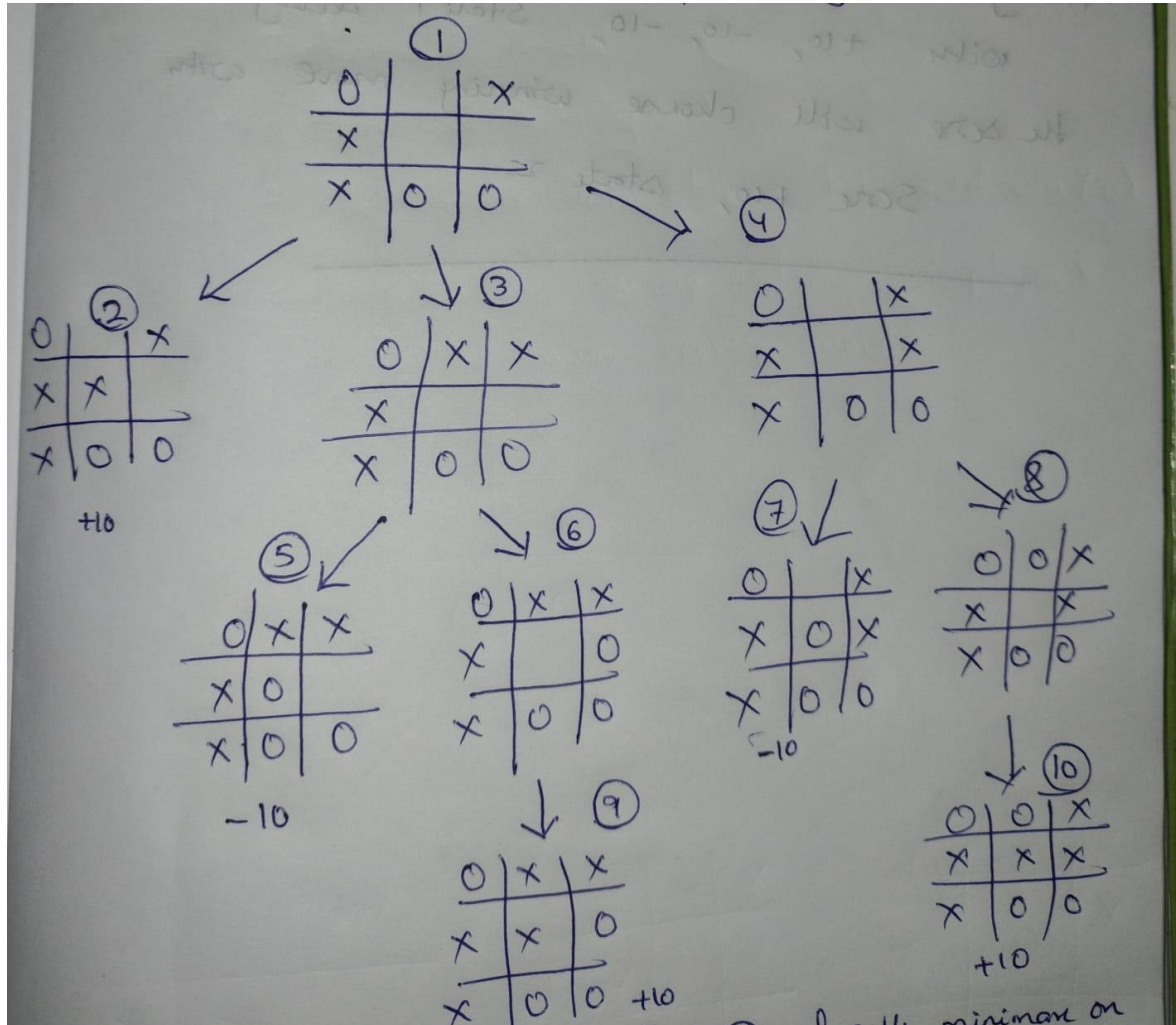 1
O | | X
X | |
X | O | O
2
O | | X
X | X |
X | O | O
+10
3
O | X | X
X | |
X | O | O
4
O | | X
X | | X
X | O | O
5
O | X | X
X | O |
X | O | O
-10
6
O | X | X
X | | O
X | O | O
7
O | | X
X | O | X
X | O | O
-10
8
O | O | X
X | | X
X | O | O
9
O | X | X
X | X | O
X | O | O +10
10
O | O | X
X | X | X
X | O | O
+10
minimax on